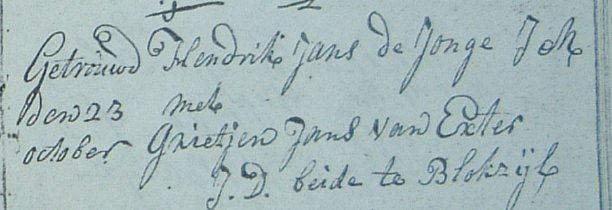 Getrouwd Hendrik Jans de Jonge J M
den 23 met
october Grietjen Jans van Exter
J. D. beide te Blokzijl